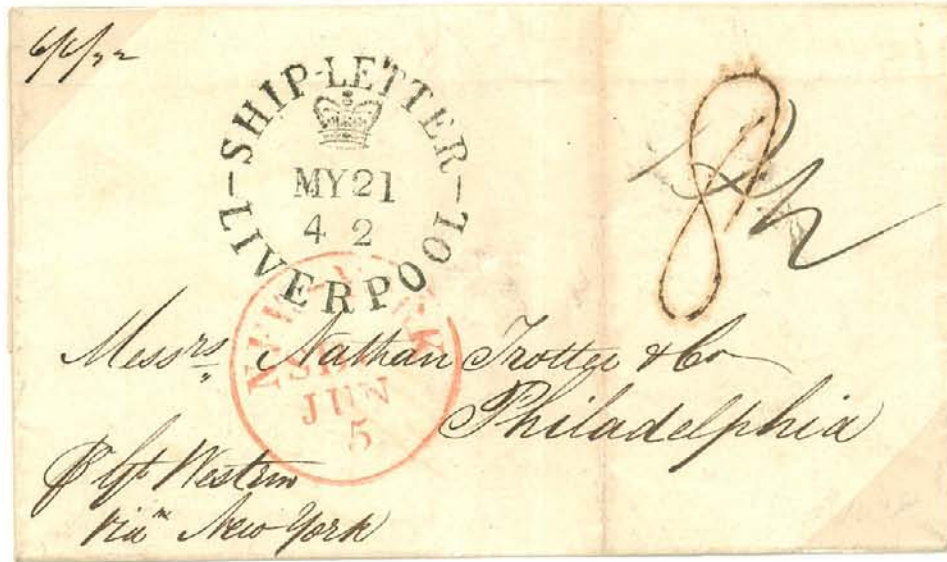 SHIP-LETTER
MY21
42
LIVERPOOL
NEW YORK
SHIP
JUN
5
8
Messrs Nathan Trotter & Co
Philadelphia
Western
via New York